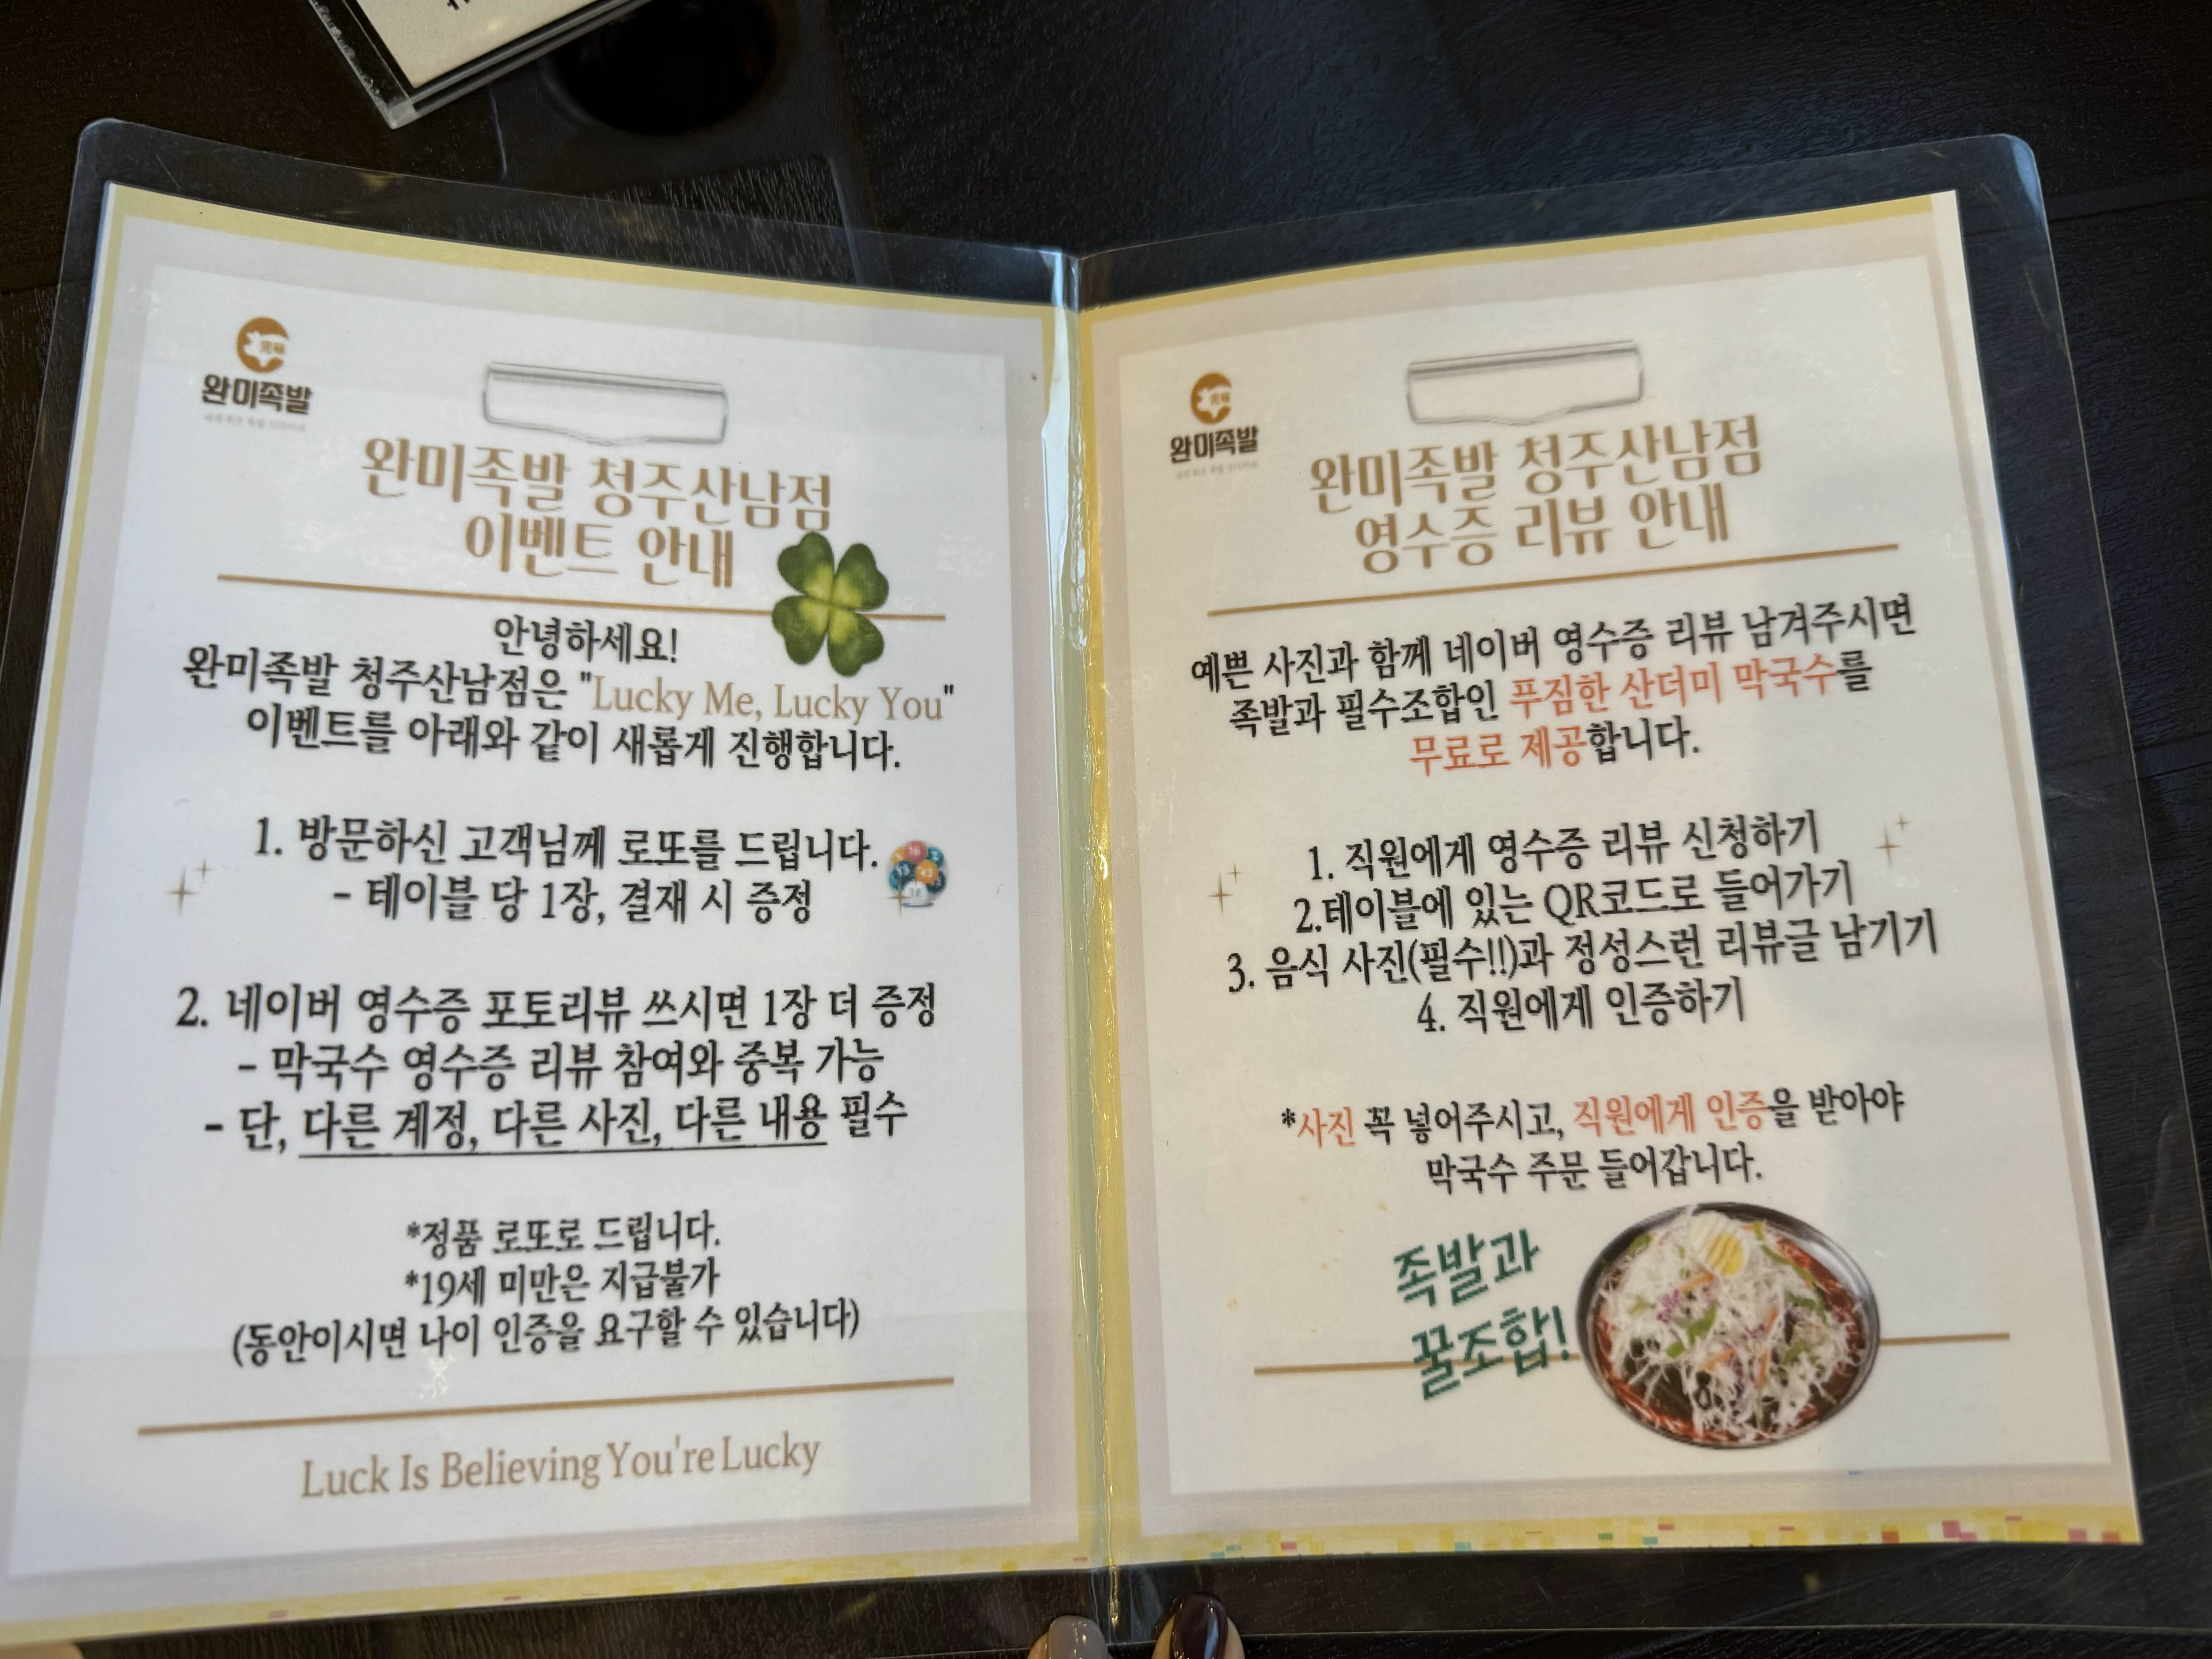 완미족발
완미족발 청주산남점
이벤트 안내
안녕하세요!
완미족발 청주산남점은 "Lucky Me, Lucky You"
이벤트를 아래와 같이 새롭게 진행합니다.
1. 방문하신 고객님께 로또를 드립니다.
- 테이블 당 1장, 결재 시 증정
2. 네이버 영수증 포토리뷰 쓰시면 1장 더 증정
- 막국수 영수증 리뷰 참여와 중복 가능
- 단, 다른 계정, 다른 사진, 다른 내용 필수
*정품 로또로 드립니다.
*19세 미만은 지급불가
(동안이시면 나이 인증을 요구할 수 있습니다)
Luck Is Believing You're Lucky
완미족발
완미족발 청주산남점
영수증 리뷰 안내
예쁜 사진과 함께 네이버 영수증 리뷰 남겨주시면
족발과 필수조합인 푸짐한 산더미 막국수를
무료로 제공합니다.
1. 직원에게 영수증 리뷰 신청하기
2.테이블에 있는 QR코드로 들어가기
3. 음식 사진(필수!!)과 정성스런 리뷰글 남기기
4. 직원에게 인증하기
*사진 꼭 넣어주시고, 직원에게 인증을 받아야
막국수 주문 들어갑니다.
족발과
꿀조합!